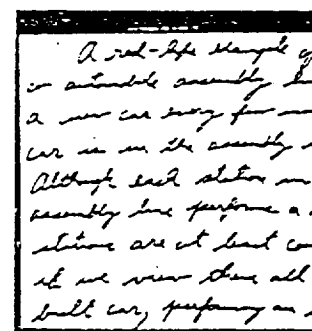 A real-life example of
an automobile assembly
a new car every few
car is in the assembly
Although each station
assembly line performs a
stations are at least
if we view them all
built car, performing an